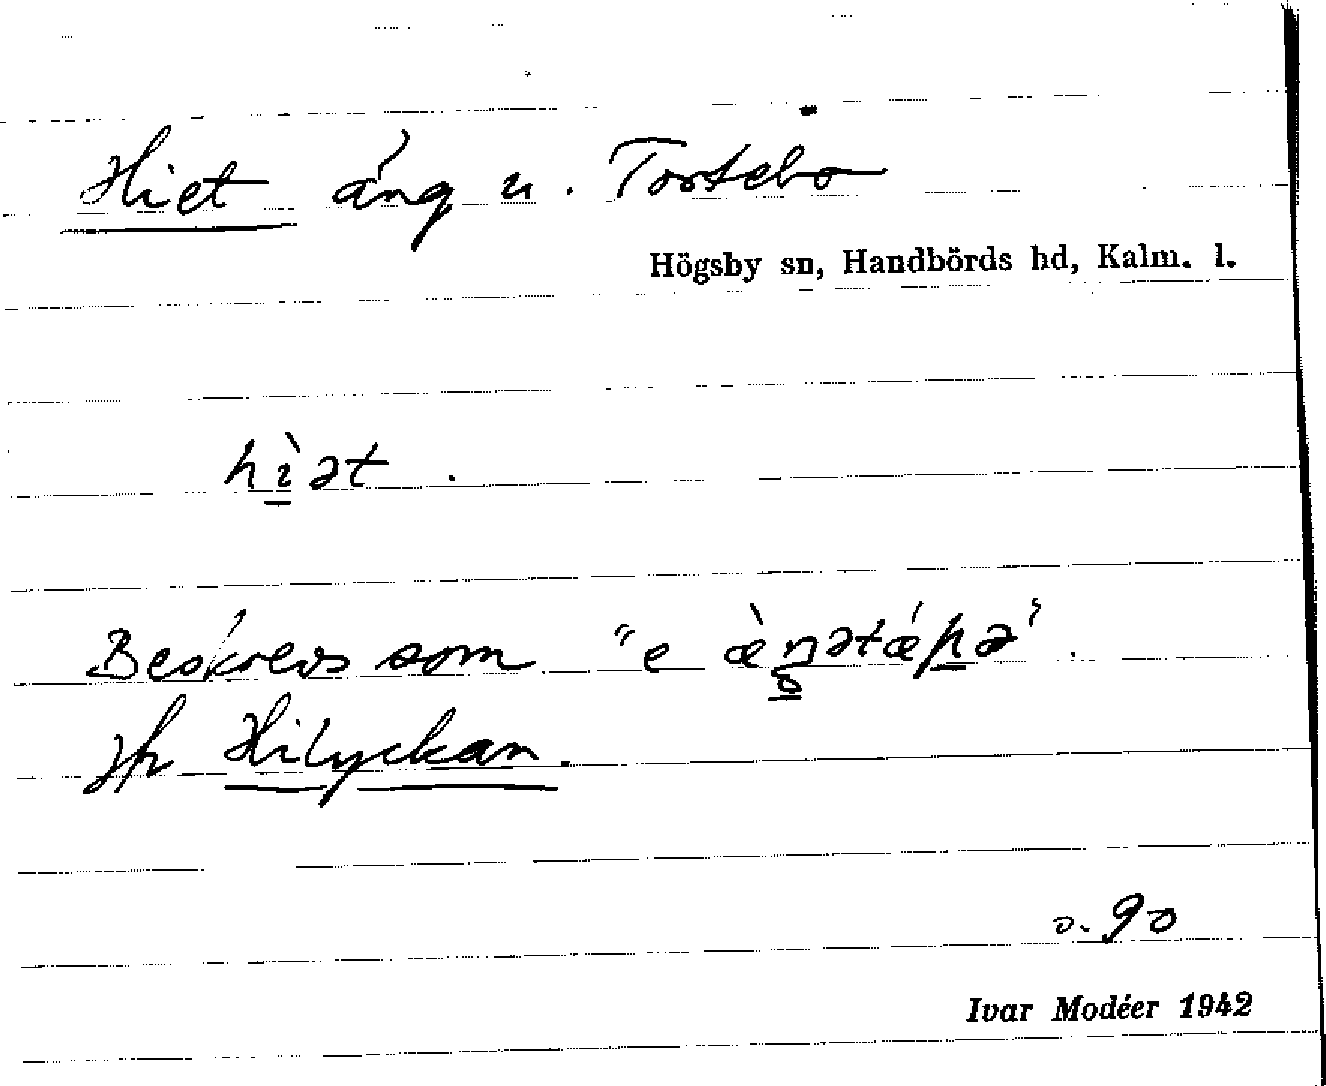 Hiet äng u. Torstebo
Högsby sn, Handbörds hd, Kalm. l.
hìət.
Beskrevs som "e æ̀ŋətǽpə".
Jfr Hilyckan.
s. 90
Ivar Modéer 1942